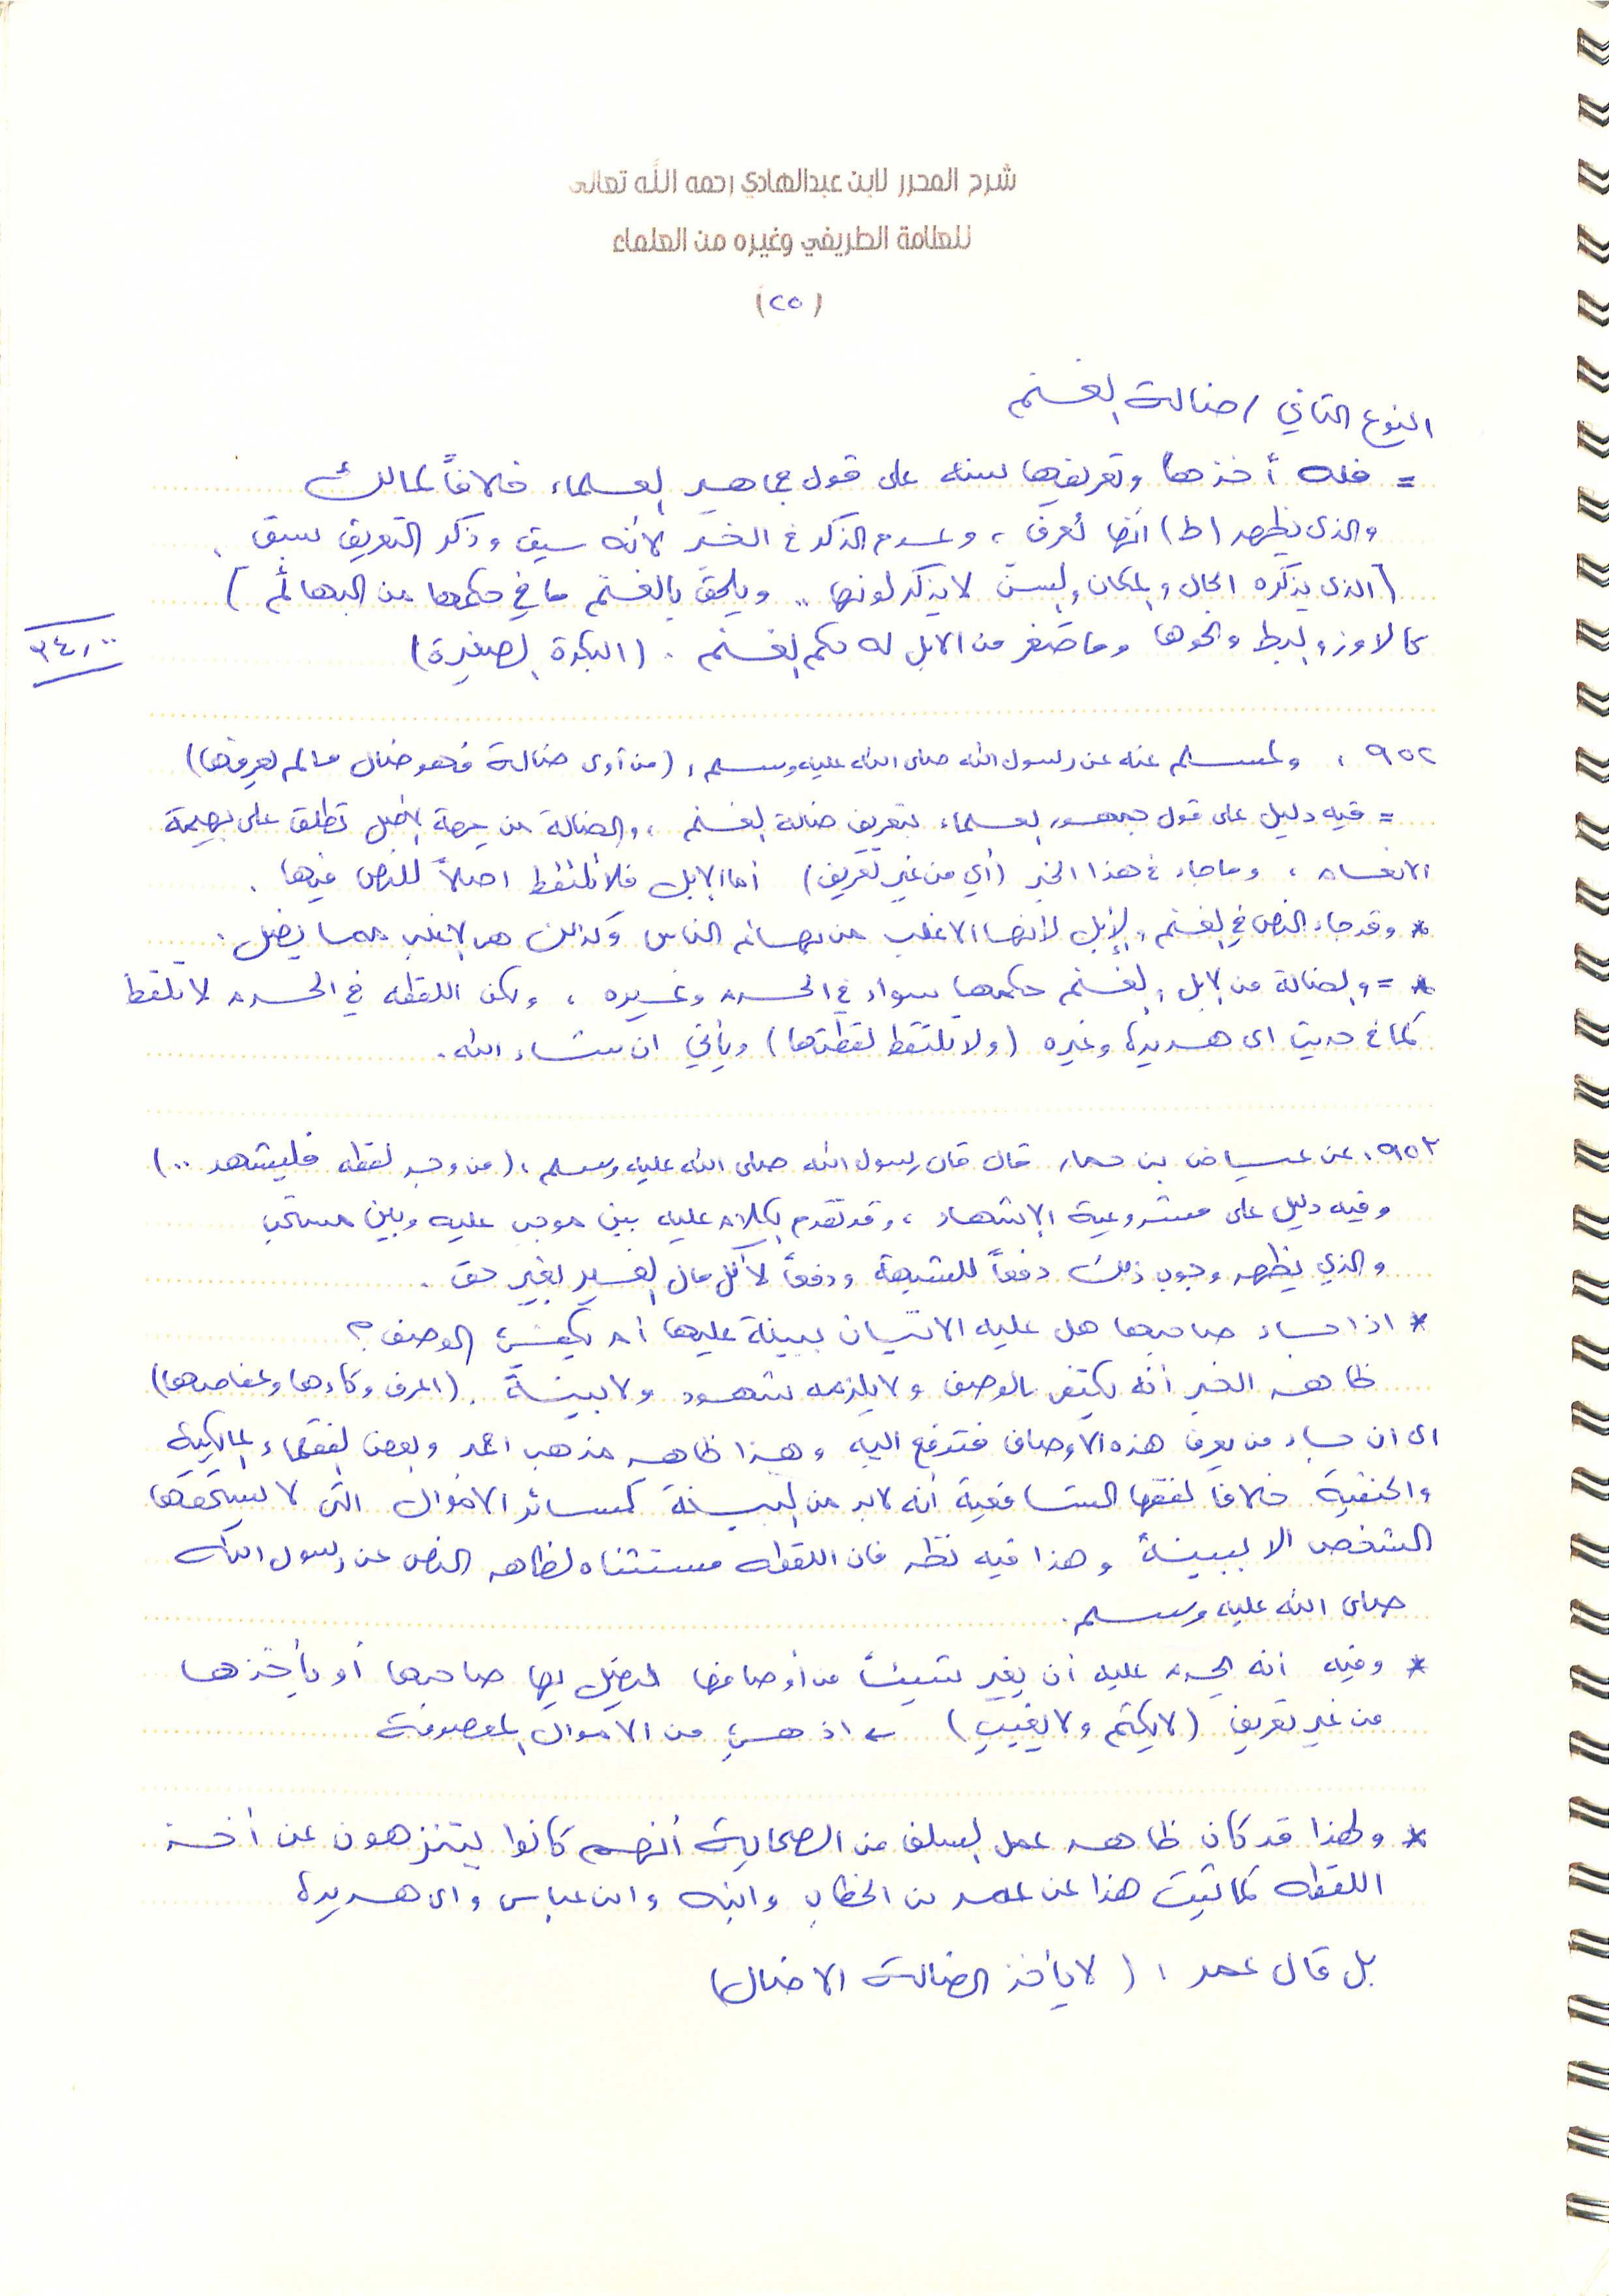 شرح المحرر لابن عبدالهادي رحمه الله تعالى
للعلامة الطريفي وغيره من العلماء
(٢٥)
النوع الثاني / ضالة الغنم
= فله أخذها وتعريفها سنه على قول جماهير العلماء خلافاً لمالك
والذي يظهر (ط) أنها تُعرف ، وعدم الذكر في الخبر لأنه سيق وذكر التعريف سبق .
(الذي يذكره الحال والمكان والسن لا يذكر لونها .. ويلحق بالغنم ما في حكمها من البهائم)
كالاوز والبط ونحوها وما صغر من الابل له حكم الغنم . (البكرة الصغيرة)
٣٤,٠٠
٩٥٢ : ولمسلم عنه عن رسول الله صلى الله عليه وسلم : (من آوى ضالة فهو ضال مالم يعرفها)
= فيه دليل على قول جمهور العلماء بتعريف ضالة الغنم ، والضالة من جهة الأصل تطلق على بهيمة
الانعام ، وما جاء في هذا الخبر (أي من غير تعريف) أما الإبل فلا تلتقط اصلاً للنص فيها .
* وقد جاء النص في الغنم والإبل لأنها الاغلب من بهائم الناس وكذلك هي الاغلب مما يضل .
* = والضالة من الابل والغنم حكمها سواء في الحرم وغيره ، ولكن اللقطه في الحرم لا تلتقط
كما في حديث ابي هريرة وغيره (ولا تلتقط لقطتها) ويأتي ان شاء الله .
٩٥٣ : عن عياض بن حمار قال قال رسول الله صلى الله عليه وسلم : (من وجد لقطه فليشهد ..)
وفيه دليل على مشروعية الإشهاد ، وقد تقدم الكلام عليه بين موجب عليه وبين مستحب
والذي يظهر وجوب ذلك دفعاً للشبهة ودفعاً لأكل مال الغير بغير حق .
* اذا جاء صاحبها هل عليه الاتيان ببينة عليها أم يكفي الوصف ؟
ظاهر الخبر أنه يكتفى بالوصف ولا يلزمه شهود ولا بينة . (اعرف وكاءها وعفاصها)
اي ان جاء من يعرف هذه الأوصاف فتدفع اليه وهذا ظاهر مذهب احمد وبعض الفقهاء المالكية
والحنفية خلافاً لفقها الشافعية أنه لابد من البينة كسائر الاموال التي لا يستحقها
الشخص الا ببينة وهذا فيه نظر فان اللقطه مستثناه لظاهر النص عن رسول الله
صلى الله عليه وسلم .
* وفيه أنه يحرم عليه أن يغير شيئاً من أوصافها ليضل بها صاحبها أو يأخذها
من غير تعريف (لا يكتم ولا يغيب) ← اذ هي من الاموال المعصومة
* ولهذا قد كان ظاهر عمل السلف من الصحابة أنهم كانوا يتنزهون عن أخذ
اللقطه كما ثبت هذا عن عمر بن الخطاب وابنه وابن عباس وابي هريرة
بل قال عمر : (لا يأخذ الضالة الا ضال)